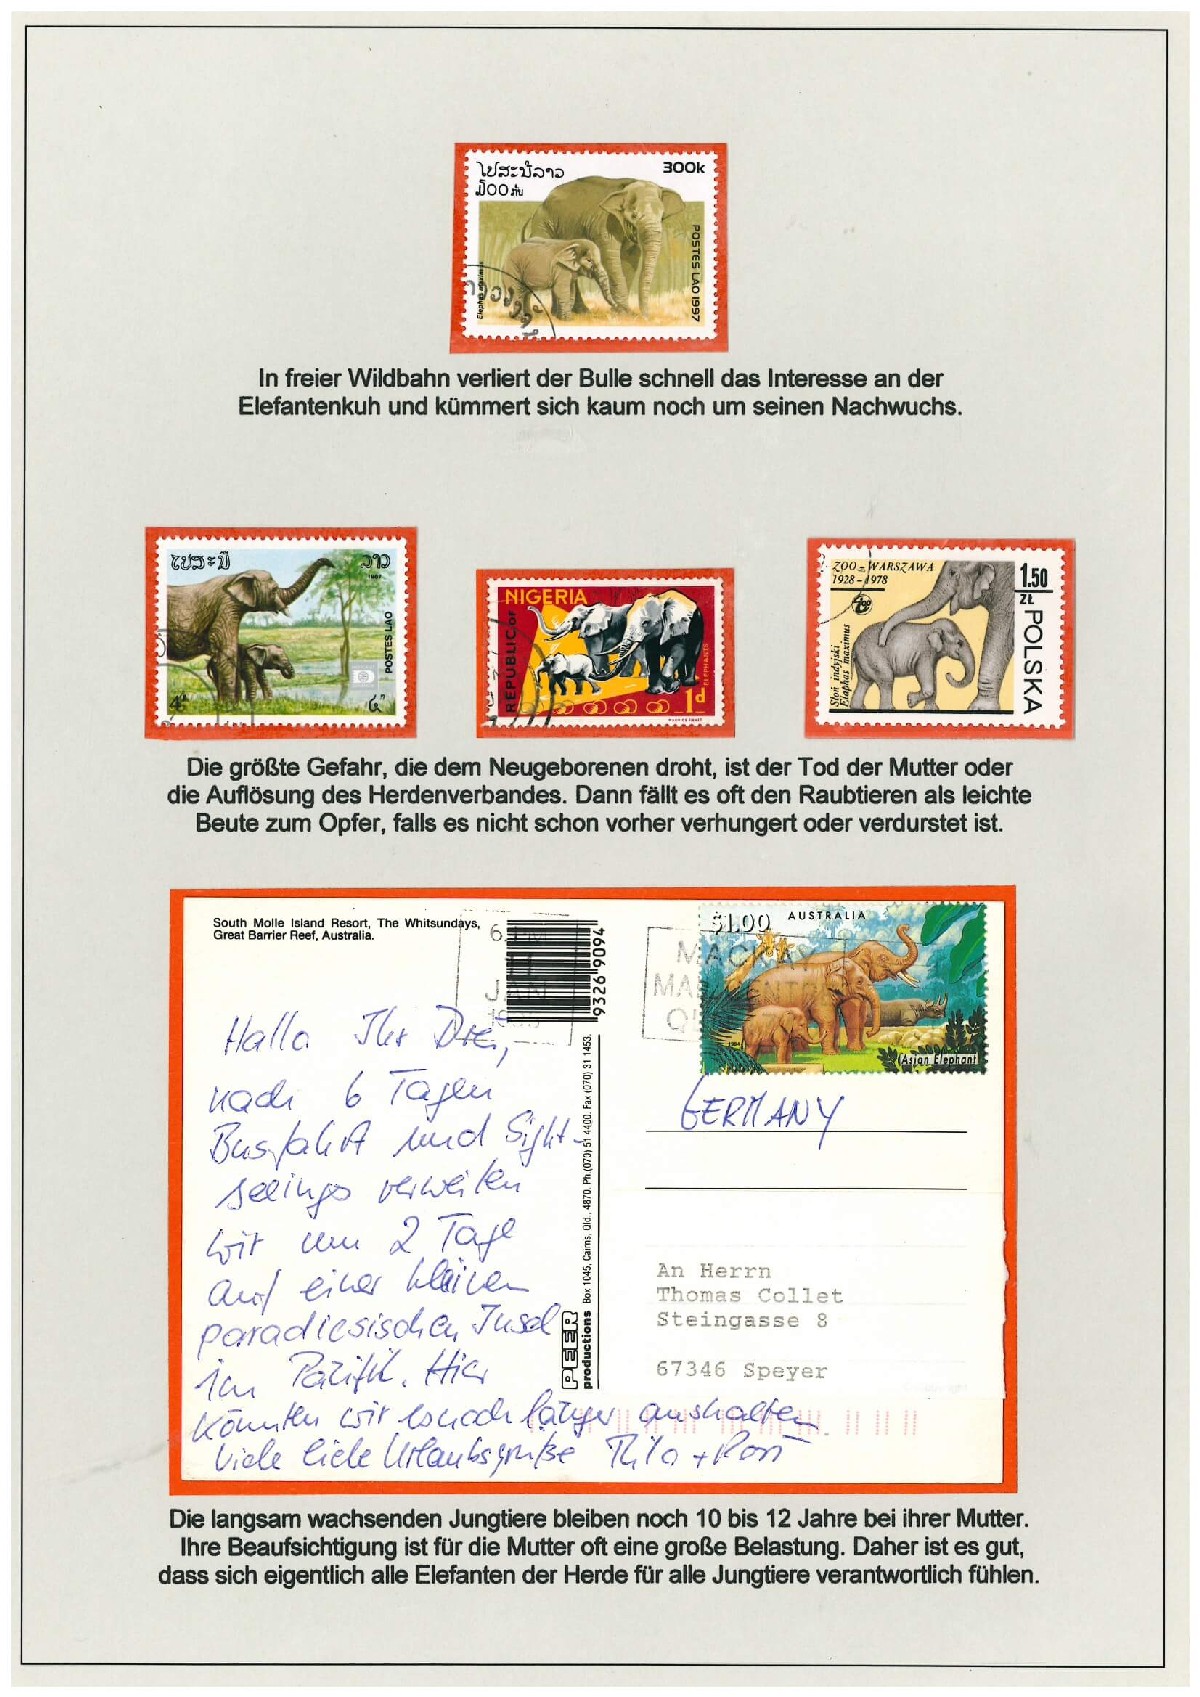 ໄປສະນີລາວ
300k
POSTES LAO 1997
Elephas maximus
In freier Wildbahn verliert der Bulle schnell das Interesse an der
Elefantenkuh und kümmert sich kaum noch um seinen Nachwuchs.
ລາວ
1987
POSTES LAO
REPUBLIC OF
NIGERIA
ELEPHANTS
1d
ZOO-WARSZAWA
1928-1978
1.50
ZŁ
POLSKA
Słoń indyjski
Elephas maximus
Die größte Gefahr, die dem Neugeborenen droht, ist der Tod der Mutter oder
die Auflösung des Herdenverbandes. Dann fällt es oft den Raubtieren als leichte
Beute zum Opfer, falls es nicht schon vorher verhungert oder verdurstet ist.
South Molle Island Resort, The Whitsundays,
Great Barrier Reef, Australia.
JAN
9326 9094
MACKAY
$1.00
AUSTRALIA
1994
(Asian Elephant)
Hallo Ihr Drei,
nach 6 Tagen
Busfahrt und Sight-
seeings verweilen
wir nun 2 Tage
auf einer kleinen
paradiesischen Insel
im Pazifik. Hier
könnten wir es noch länger aushalten
Viele liebe Urlaubsgrüße
PEER
productions
Box 1045, Cairns, Qld., 4870. Ph:(070) 51 4400. Fax (070) 31 1453.
GERMANY
An Herrn
Thomas Collet
Steingasse 8
67346 Speyer
Die langsam wachsenden Jungtiere bleiben noch 10 bis 12 Jahre bei ihrer Mutter.
Ihre Beaufsichtigung ist für die Mutter oft eine große Belastung. Daher ist es gut,
dass sich eigentlich alle Elefanten der Herde für alle Jungtiere verantwortlich fühlen.